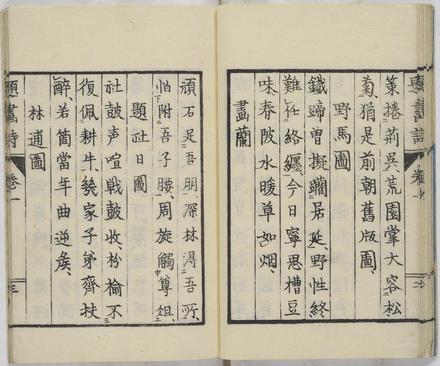 題畫詩 卷一
策捲荊吳荒園掌大容松
菊猶是前朝舊版圖
野馬圖
鐵蹄曽擬躙居延野性終
難任絡纏今日寧思槽豆
味春陂水暖草如烟
畫蘭
頑石足吾朋深林得吾所
怙附吾子腰周旋觸尊俎
題社日圖
社鼓声喧戰鼓收枌榆不
復佩耕牛幾家子弟齊扶
醉若箇當年曲逆矦
林逋圖
題畫詩 卷一 三